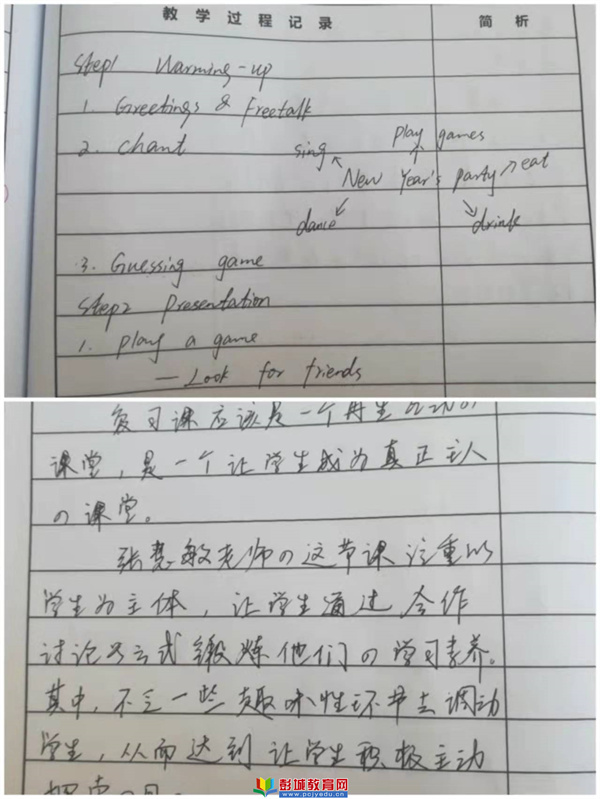 教学过程记录 简析
Step1 Warming-up
1. Greetings & Freetalk
2. Chant
sing play games
New Year's party eat
dance drink
3. Guessing game
Step2 Presentation
1. Play a game
— Look for friends
复习课应该是一个再生
课堂，是一个让学生成为真正主人
の课堂。
张慧敏老师の这节课注重以
学生为主体，让学生通过合作
讨论等方式锻炼他们の学习素养。
其中，不乏一些趣味性环节去调动
学生，从而达到让学生积极主动
彭城教育网
www.pcjyedu.cn